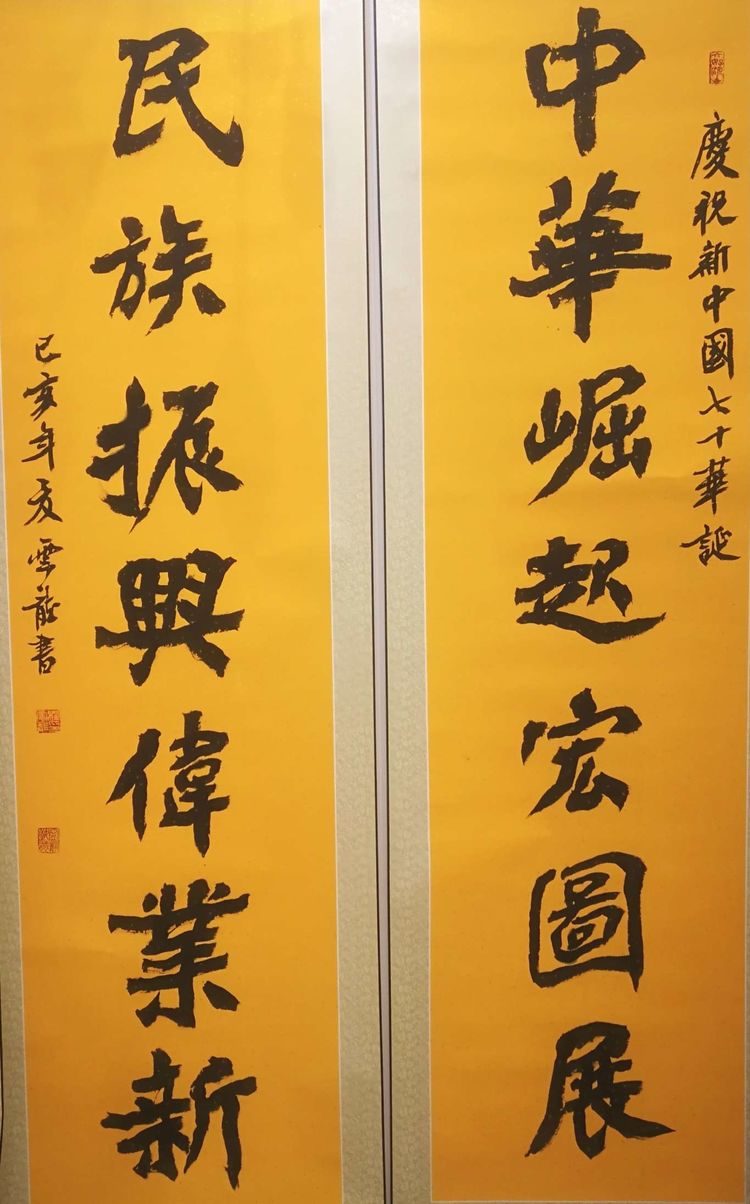 慶祝新中國七十華誕
中華崛起宏圖展
民族振興偉業新
己亥年夏雲龍書